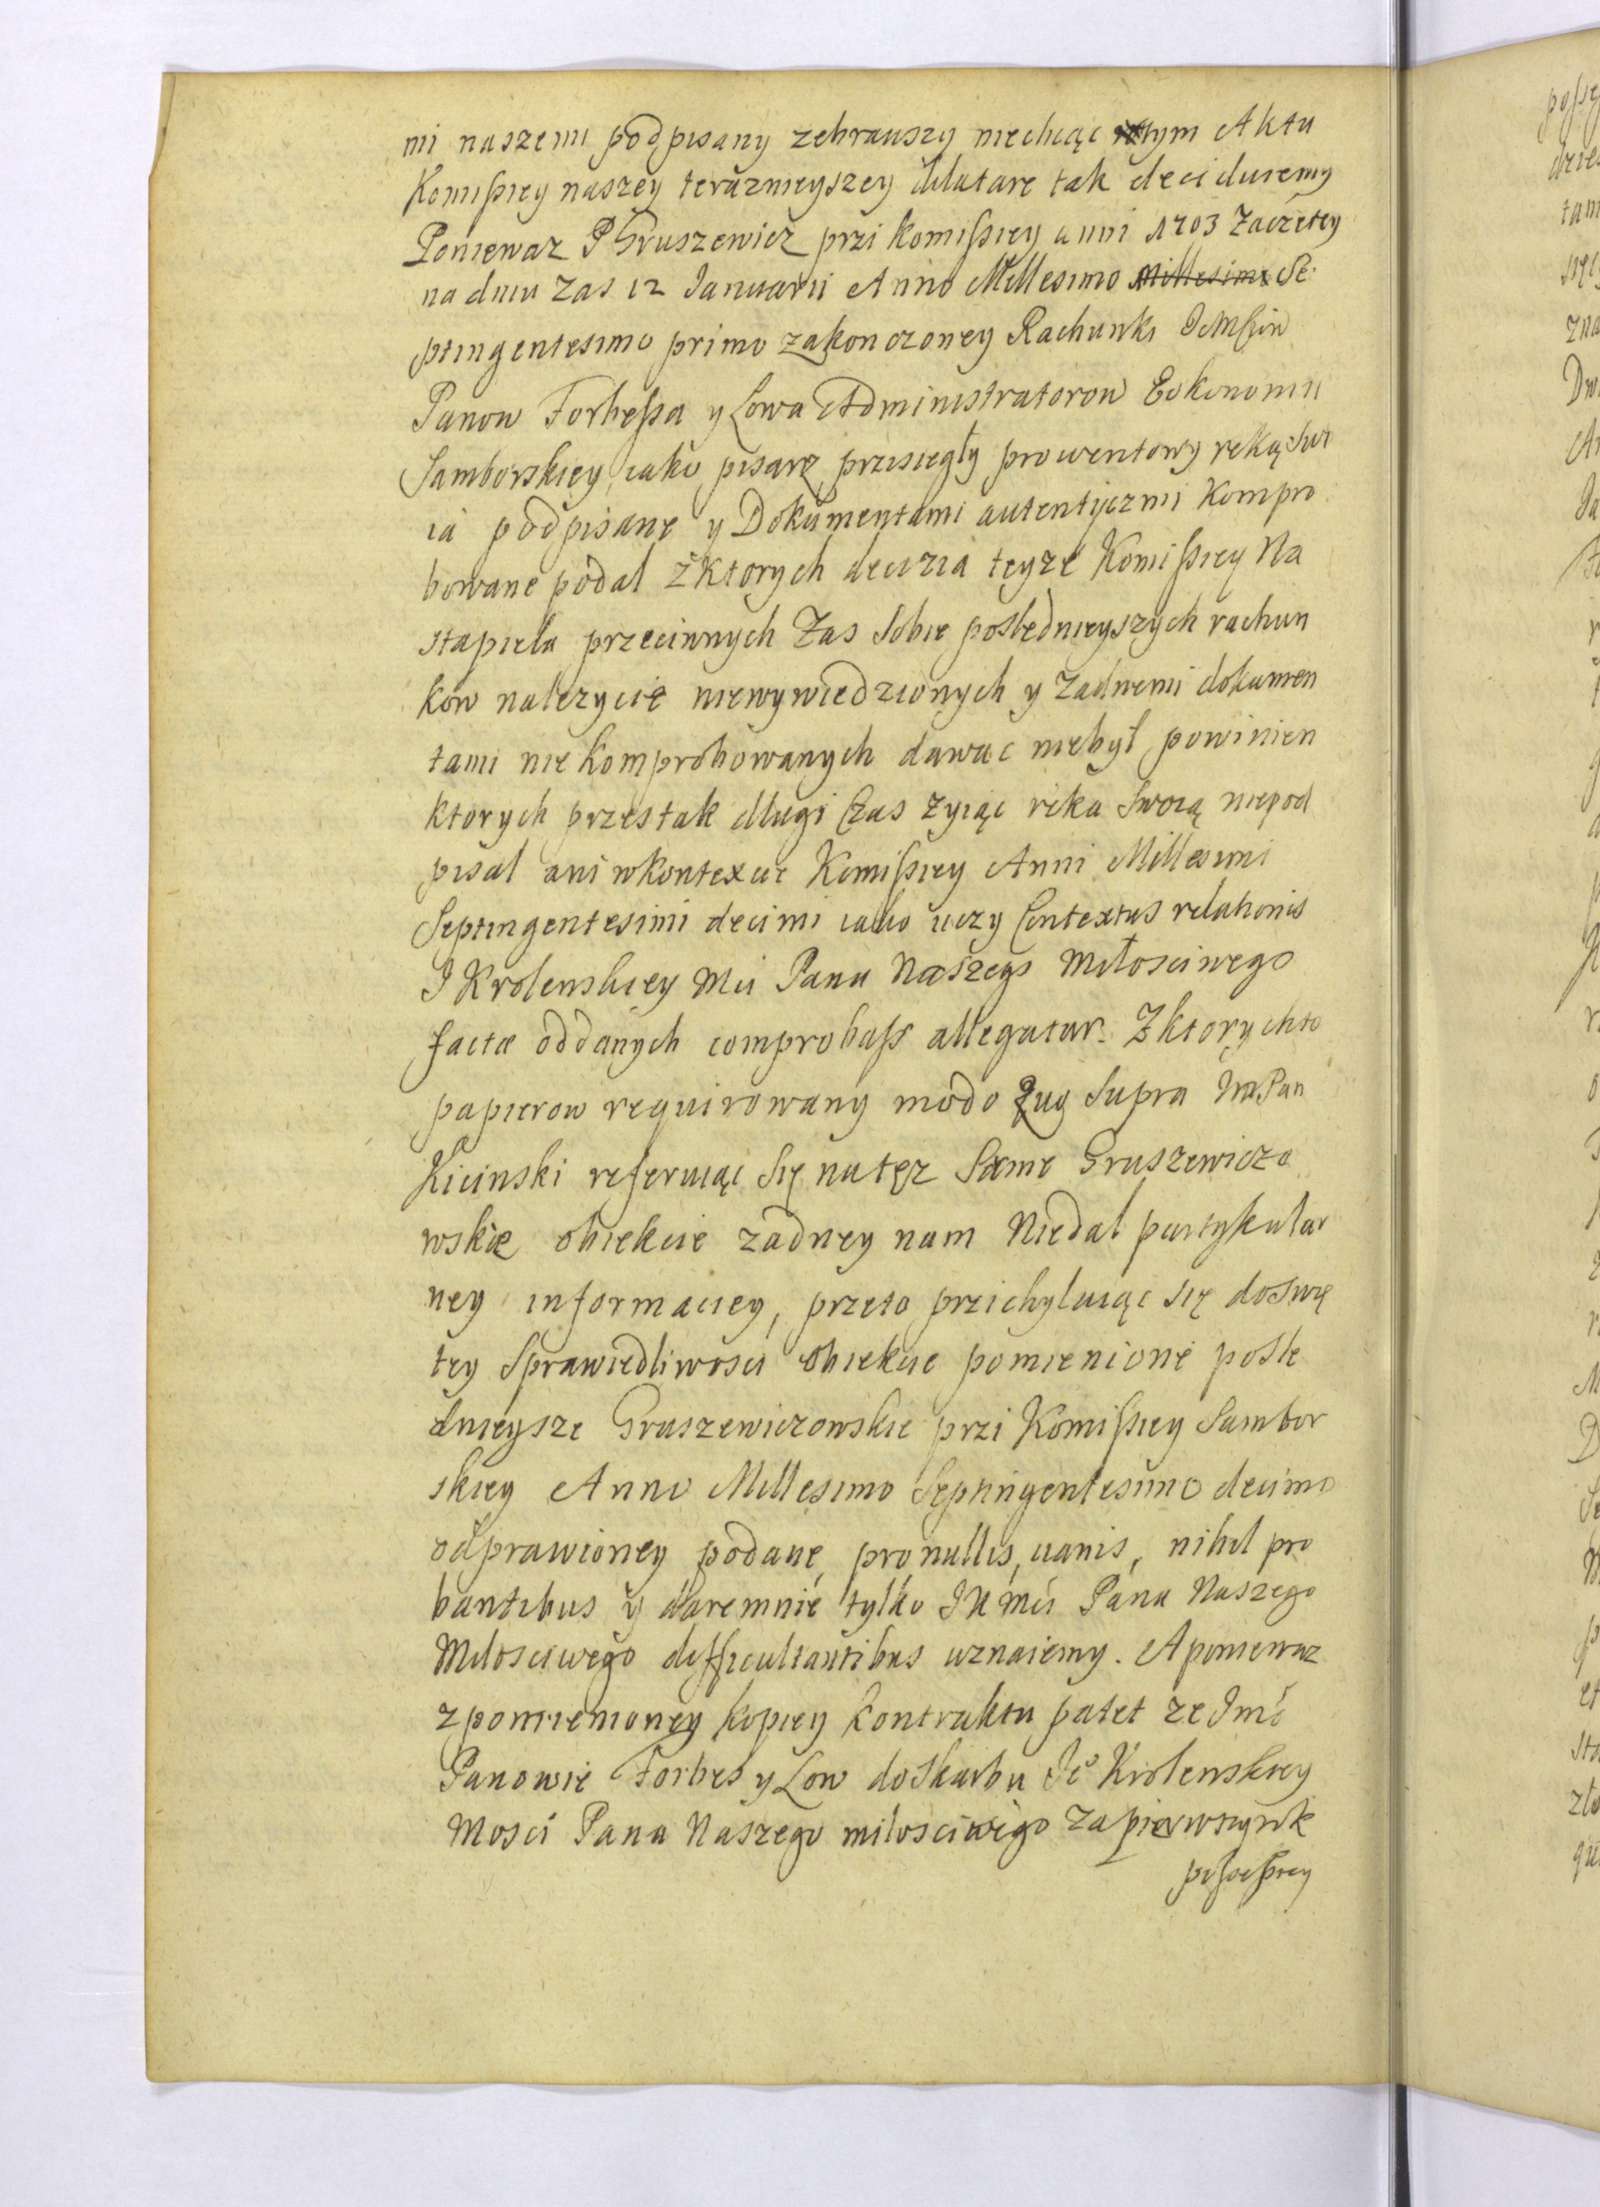 mi naszemi podpisany zebrawszy niechcąc wtym Aktu
Komissiey naszey terazniejszey dilatare tak deciduiemy
Poniewaz P Gruszewicz przi komissiey anni 1703 Zaczetey
na dniu zas 12 Januarii Anno Millesimo Millesimo Se
ptingentesimo primo zakonczoney Rachunki
Panow Forbessa y Lowa Administratorow Eokonomii
Samborskiey iako pisarz przisiegły prowentowy reką swo
ia podpisane y Dokumentami autentycznii kompro
bowane podal zktorych decizia teyze Komissiey Na
stapiela przeciwnych Zas Sobie poslednieyszych rachun
kow nalezycie niewywiedzionych y zadnemi dokumen
tami nie komprobowanych dawac niebył powinien
ktorych przestak długi Czas zyiąc reka Swoią niepod
pisal ani wkontexcie Komissiey Anni Millesimi
Septingentesimi decimi iako uczy Contextus relationis
J Krolewskiey Mci Pana Naszego Miłosciwego
factæ oddanych comprobass allegatur. Zktorychto
papierow requirowany modo quo Supra Im Pan
Kicinski referuiąc Się natęz Same Gruszewiczo
wskie obiekcie zadney nam Niedal partykular
ney informaciey, przeto przichyluiąc się doSwię
tey Sprawiedliwosci obiekcie pomienione posle
dnieysze Gruszewiczowskie przi Komissiey Sambor
skiey Anno Millesimo Septingentesimo decimo
odprawioney podane, pro nullis, uanis, nihil pro
bantibus y daremnie tylko JK Mci Pana Naszego
Milosciwego difficultantibus uznaiemy. A poniewaz
zpomienioney kopiey kontraktu patet ze Imć
Panowie Forbes y Low doSkarbu Je Krolewskiey
Mosci Pana Naszego miłosciwego Za pierwszyrok
possessiey